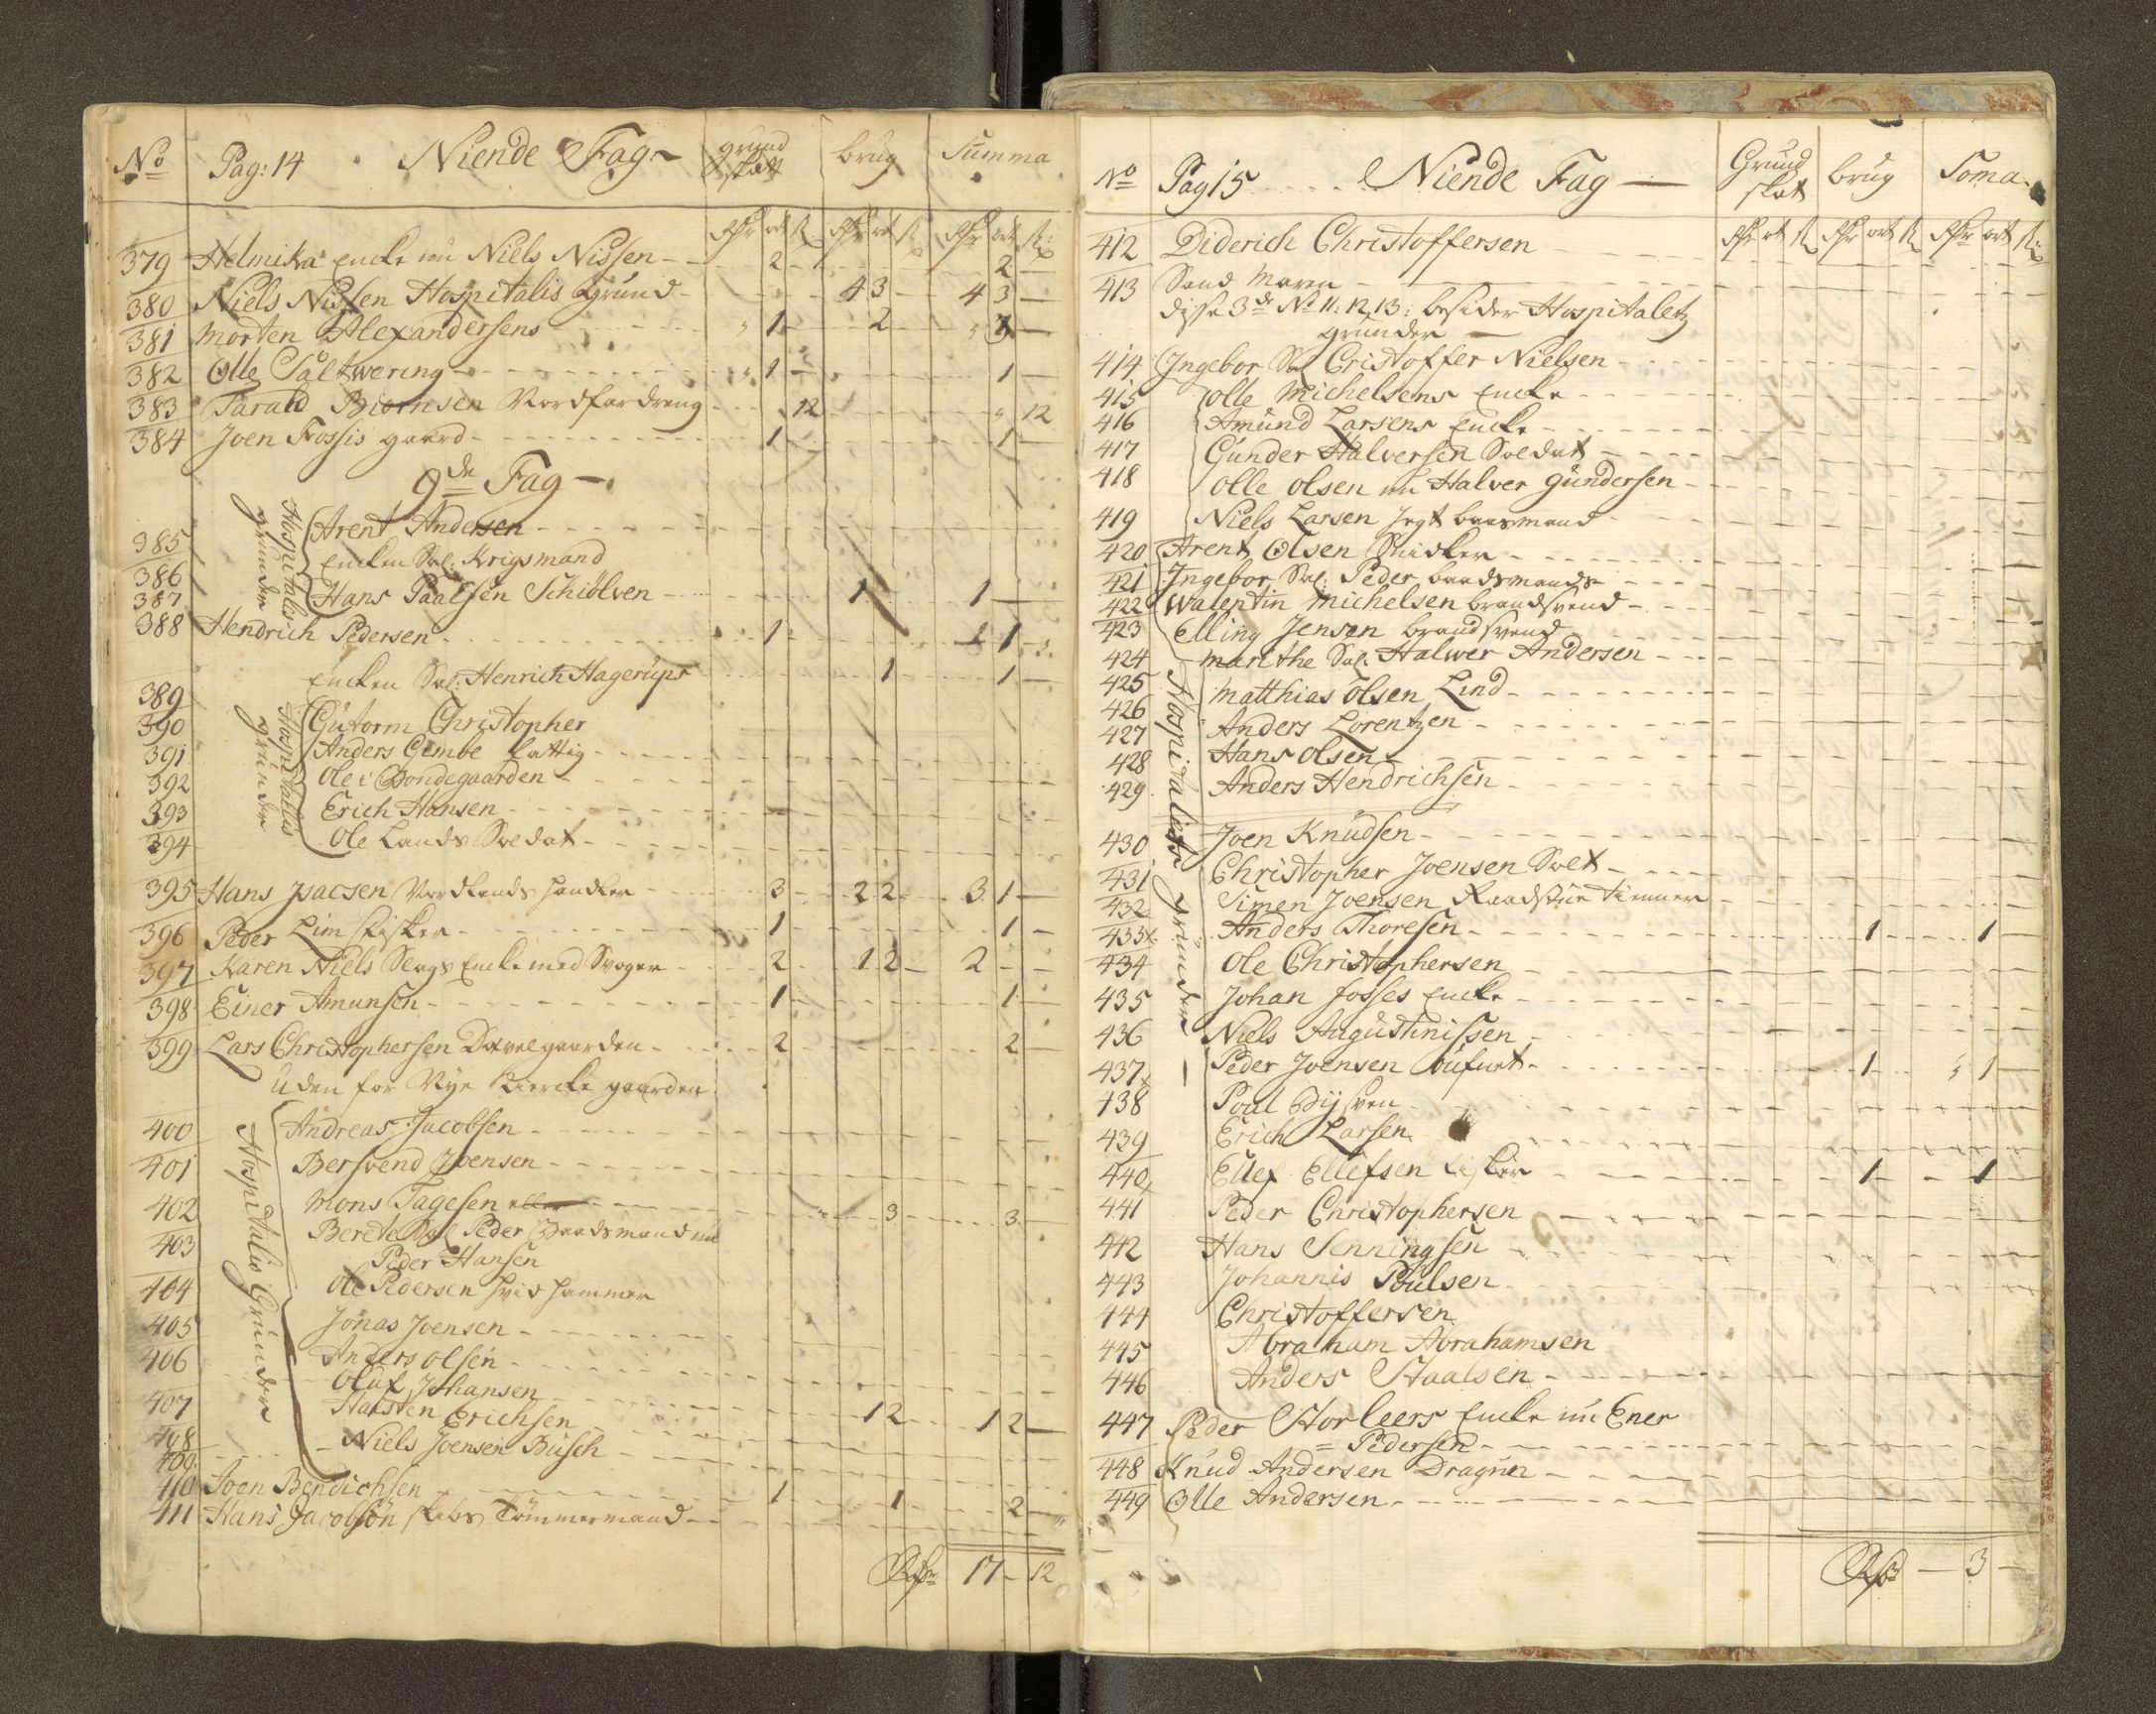 No Pag: 14 Niende Fag grund skatt brug Summa
Rdr ort s Rdr ort s Rdr ort s
379 Helmika Encke nu Niels Nissen 2 2
380 Niels Nissen Hospitalis Grund 4 3 4 3
381 Morten Alexandersens 1 2 3
382 Olle Saltwering 1 1
383 Tarald Biørnsen 12 12
384 Joen Fossis gaard 1 1
9de Fag
Hospitalis grunder
385 Arent Andersen
386 Encken Sal: Krigsmand
387 Hans Paalsen Schiølven 1 1
388 Hendrich Pedersen 1 1
389 Encken Sal: Henrich Hagerups 1 1
Hospitallis grunder
390 Gutorm Christopher
391 Anders Gimbe fattig
392 Ole i Bondegaarden
393 Erich Hansen
394 Ole Lands Soldat
395 Hans Isacsen Nordlands handler 3 2 2 3 1
396 Peder Lim fisker 1 1
397 Karen Niels Slags Encke med Svoger 2 1 2 2
398 Einer Amunsen 1 1
399 Lars Christophersen 2 2
Uden for Nye Kiercke gaarden
Hospitalis Grunder
400 Andreas Jacobsen
401 Bersvend Joensen
402 Mons Tagesen eller 3 3
403 Berete Sal Peder Baadsmand nu
Peder Hansen
404 Ole Pedersen hvid hammer
405 Jonas Joensen
406 Anders olsen
Oluf Johansen
407 Halsten Erichsen 1 2 1 2
408 Niels Joensen Busch
409
410 Joen Bendichsen 1 1 2
411 Hans Jacobsøn skibs Tømmermand
Rdr 17 - 12
No Pag 15 Niende Fag Grund skat brug Soma
Rdr ort s Rdr ort s Rdr ort s
412 Diderich Christoffersen
413 Sand Maren
disse 3de No 11: 12, 13: besider Hospitaletz
grunder
414 Ingebor Sal Cristoffer Nielsen
415 olle Michelsens Encke
416 Amund Larsens Encke
417 Gunder Halversen Soldat
418 olle olsen nu Halver gundersen
419 Niels Larsen Jegt baasmand
420 Arent Olsen Snicker
421 Ingebor Sal: Peder baadsmands
422 Walentin Michelsen brandsvend
423 Elling Jensen brandsvend
424 Marithe Sal: Halwer Andersen
Hospitaliets grunder
425 Matthias Olsen Lind
426
427 Anders Lorentzen
428 Hans Olsen
429 Anders Hendrichsen
430 Joen Knudsen
431 Christopher Joensen
432 Simen Joensen Raadstue tienner
433x Anders Thoresen 1 1
434 Ole Christophersen
435 Johan fosses Encke
436 Niels Augustinissen
437x Peder Joensen 1 1
438 Poul
439 Erich Larsen
440x Ellef Ellefsen fisker 1 1
441 Peder Christophersen
442 Hans Senningsen
443 Johannis Poulsen
444 Christoffersen
445 Abraham Abrahamsen
446 Anders Staalsen
447 Peder Horleers Encke nu Ener
= Pedersen
448 Knud Andersen Dragun
449 Olle Andersen
Rdr - 3 -